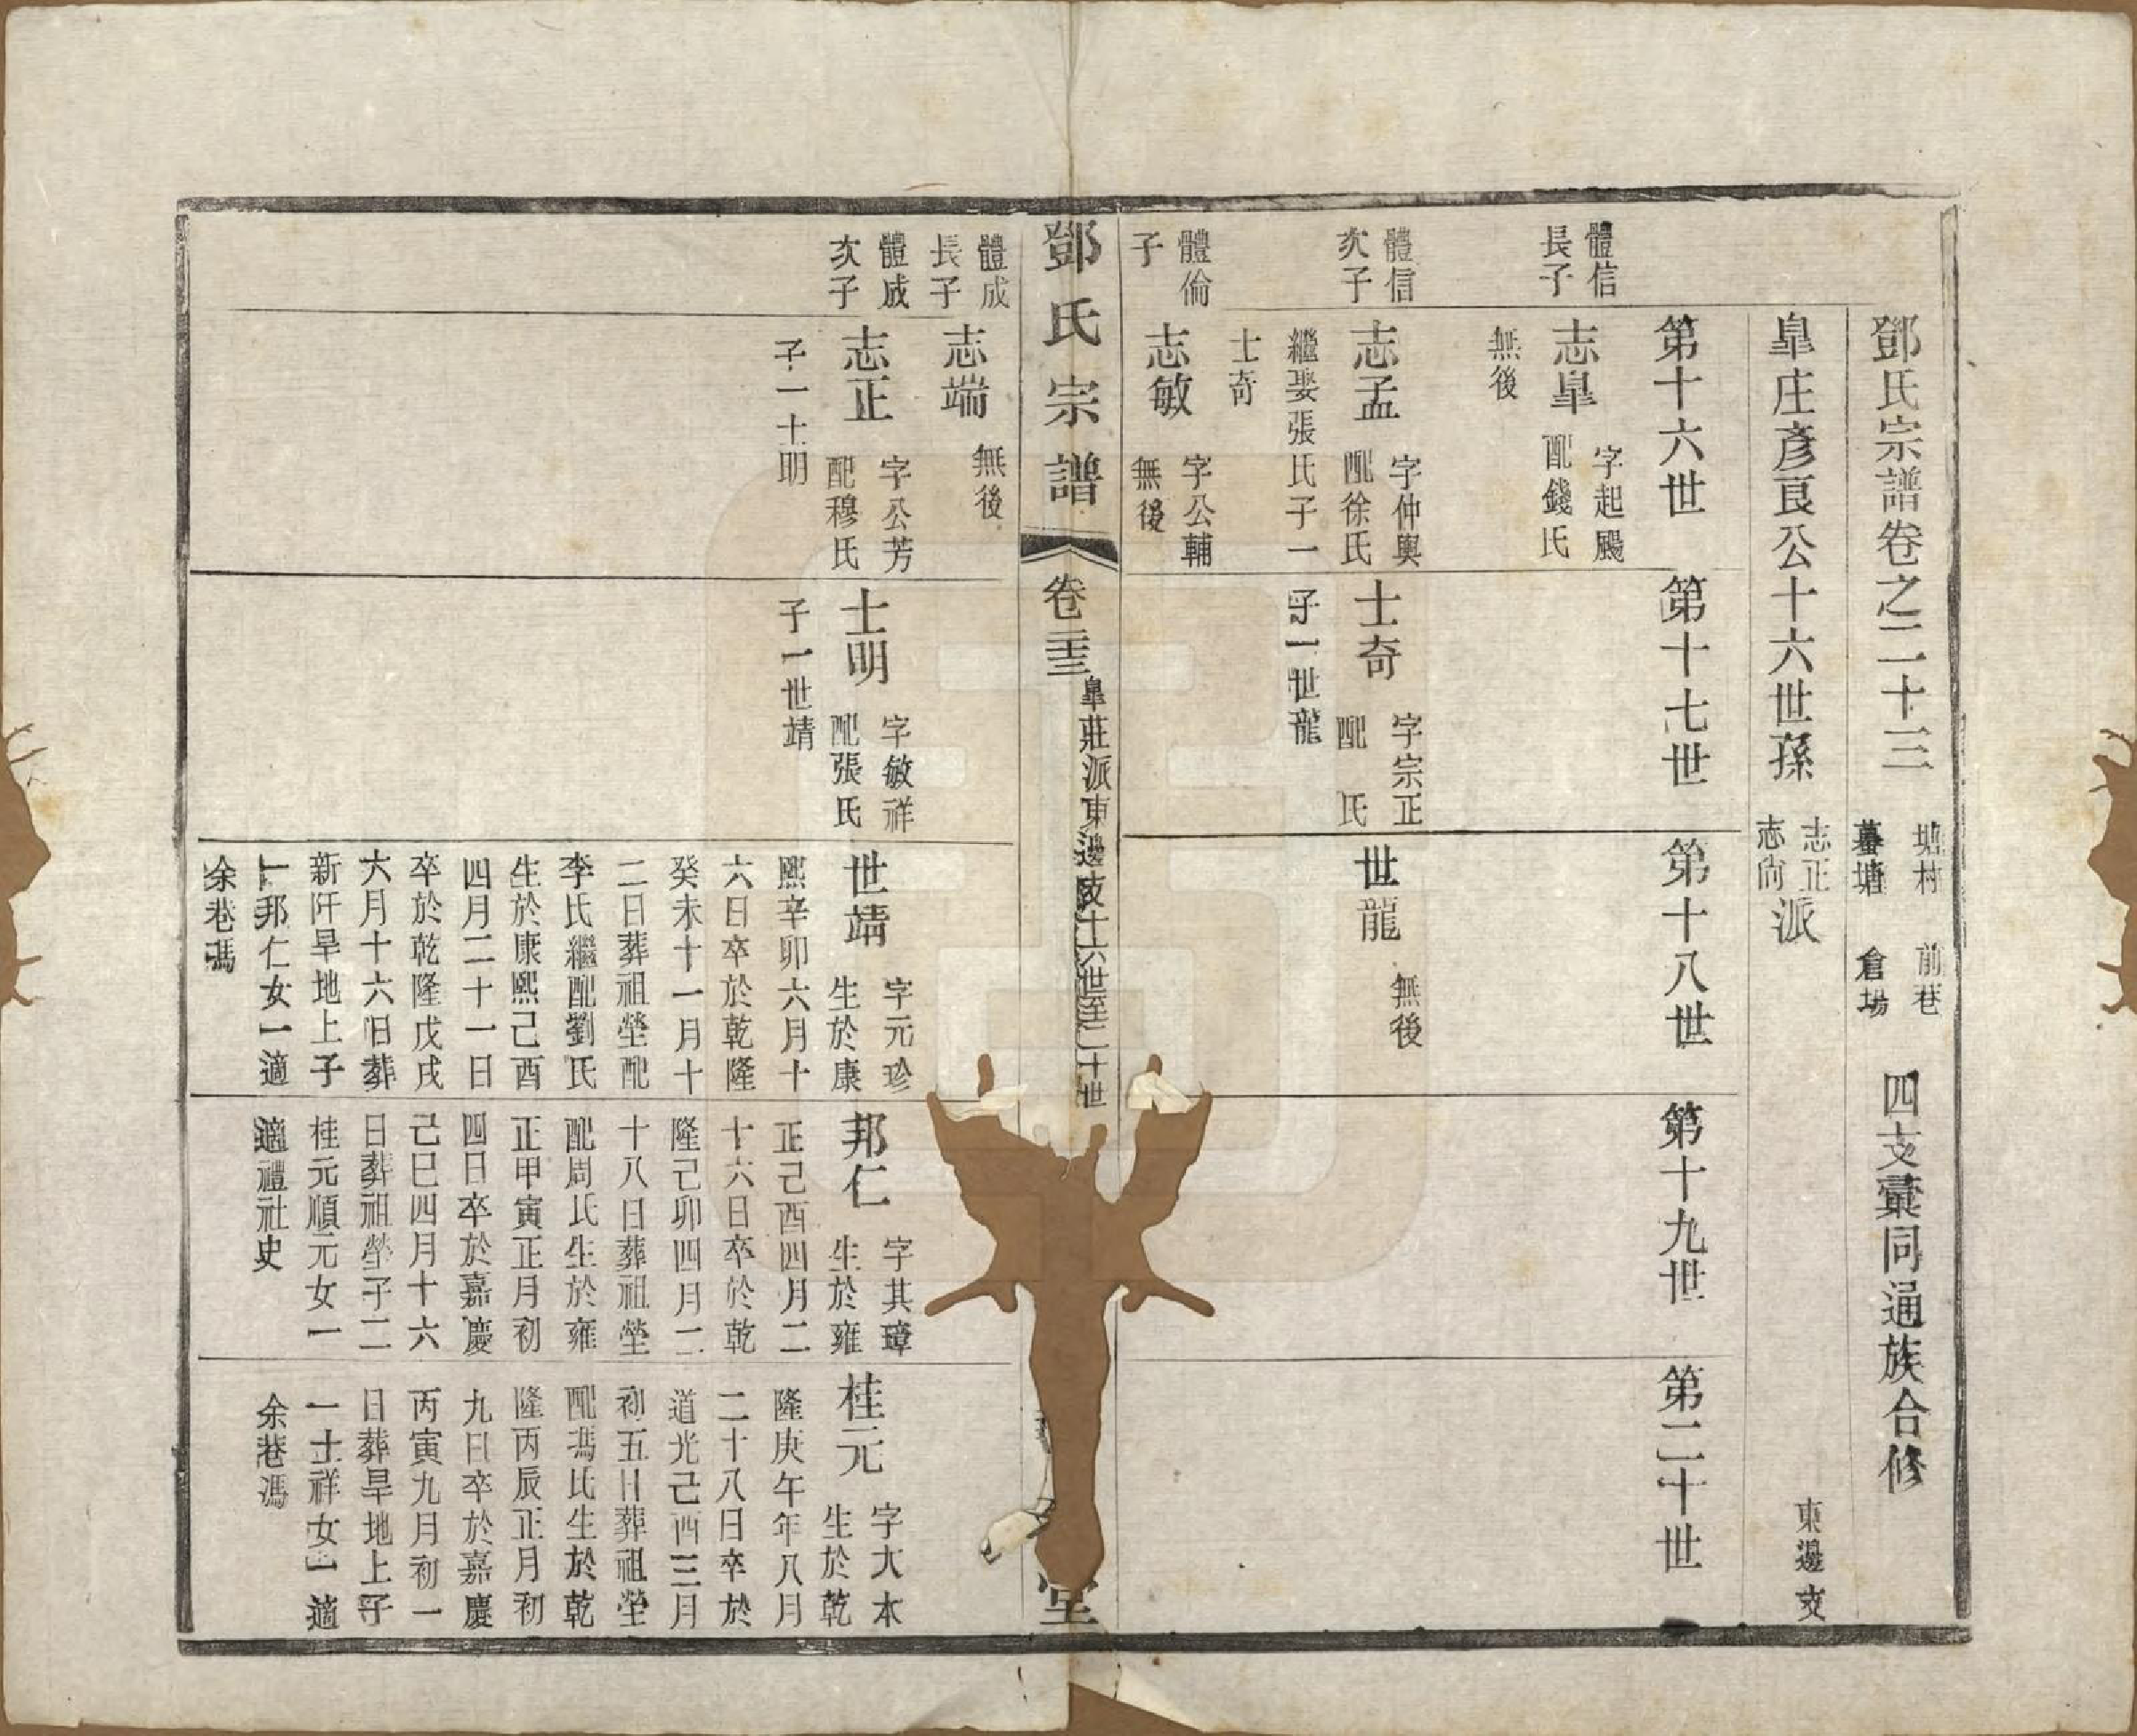 鄧氏宗譜卷之二十三
塘村
蟇塘
前巷
倉場
四支彙同通族合修
皐庄彥良公十六世孫
志正
志尙
派
東邊支
第十六世
第十七世
第十八世
第十九世
第二十世
體信
長子
志皐
字起颺
配錢氏
無後
體信
次子
志孟
字仲輿
配徐氏
繼娶張氏子一
士奇
士奇
字宗正
配 氏
子一世龍
世龍
無後
體倫
子
志敏
字公輔
無後
鄧氏宗譜
卷二十三
皐莊派東邊支十六世至二十世
堂
體成
長子
志端
無後
體成
次子
志正
字公芳
配穆氏
子一士明
士明
字敏祥
配張氏
子一世靖
世靖
字元珍
生於康
熙辛卯六月十
六日卒於乾隆
癸未十一月十
二日葬祖塋配
李氏繼配劉氏
生於康熙己酉
四月二十一日
卒於乾隆戊戌
六月十六日葬
新阡旱地上子
一邦仁女一適
余巷馮
邦仁
字其璋
生於雍
正己酉四月二
十六日卒於乾
隆己卯四月二
十八日葬祖塋
配周氏生於雍
正甲寅正月初
四日卒於嘉慶
己巳四月十六
日葬祖塋子二
桂元順元女一
適禮社史
桂元
字大本
生於乾
隆庚午年八月
二十八日卒於
道光己酉三月
初五日葬祖塋
配馮氏生於乾
隆丙辰正月初
九日卒於嘉慶
丙寅九月初一
日葬旱地上子
一士祥女一適
余巷馮